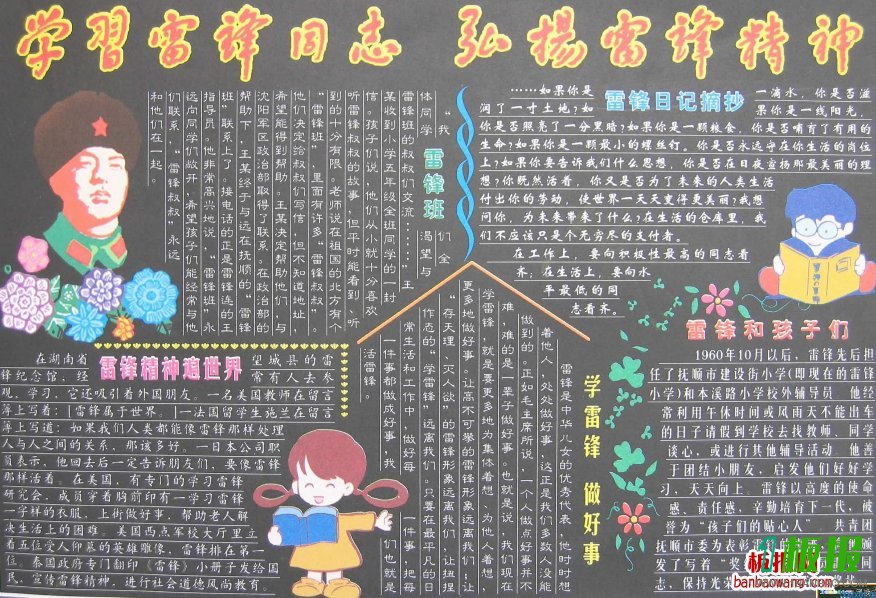 学習雷锋同志 弘揚雷锋精神
“我们全
体同学渴望与
雷锋班的叔叔们交流……”王
某收到小学五年级全班同学的一封
信。孩子们说，他们从小就十分喜欢
听雷锋叔叔的故事，但平时能看到、听
到的十分有限。老师说在祖国的北方有个
“雷锋班”，里面有许多“雷锋叔叔”。
他们决定给叔叔们写信，但不知道地址，
希望能得到帮助。王某决定帮助他们与
沈阳军区政治部取得了联系。在政治部的
帮助下，王某终于与远在抚顺的“雷锋
班”联系上了。接电话的正是雷锋连的王
指导员。他非常高兴地说，“雷锋班”永
远向同学们敞开，希望孩子们能经常与他
们联系，“雷锋叔叔”永远
和他们在一起。
雷锋班
雷锋日记摘抄
……如果你是一滴水，你是否滋
润了一寸土地？如果你是一线阳光，
你是否照亮了一分黑暗？如果你是一颗粮食，你是否哺育了有用的
生命？如果你是一颗最小的螺丝钉。你是否永远守在你生活的岗位
上？如果你要告诉我们什么思想，你是否在日夜宣扬那最美丽的理
想？你既然活着，你又是否为了未来的人类生活
付出你的劳动，使世界一天天变得更美丽？我想
问你，为未来带来了什么？在生活的仓库里，我
们不应该只是个无穷尽的支付者。
在工作上，要向积极性最高的同志看
齐，在生活上，要向水
平最低的同
志看齐。
雷锋精神遍世界
在湖南省望城县的雷
锋纪念馆，经常有人去参
观、学习，它还吸引着外国朋友。一名美国教师在留言
薄上写着：“雷锋属于世界。”一法国留学生施兰在留言
薄上写道：如果我们人类都能像雷锋那样处理
人与人之间的关系，那该多好。一日本公司职
员表示，他回去后一定告诉朋友们，要像雷锋
那样活着。在美国，有专门的学习雷锋
研究会，成员穿着胸前印有一学习雷锋
一字样的衣服，上街做好事，帮助老人解
决生活上的困难。美国西点军校大厅里立
着五位受人仰慕的英雄雕像，雷锋排在第一
位。泰国政府专门翻印《雷锋》小册子发给国
民，宣传雷锋精神，进行社会道德风尚教育。
学雷锋 做好事
雷锋是中华儿女的优秀代表，他时时想
着他人，处处做好事，这正是我们多数人没能
做到的。正如毛主席所说，一个人做点好事并不
难，难的是一辈子做好事。也就是说，我们现在
学雷锋，就是要更多地为集体着想、为他人着想，
更多地做好事。让高不可攀的雷锋形象远离我们；让
“存天理、灭人欲”的雷锋形象远离我们，让扭捏
作态的“学雷锋”远离我们。只要在最平凡的日
常生活和工作中，做好每一件事，把每
一件事都做成好事，我们也就是
活雷锋。
雷锋和孩子们
1960年10月以后，雷锋先后担
任了抚顺市建设街小学（即现在的雷锋
小学）和本溪路小学校外辅导员，他经
常利用午休时间或风雨天不能出车
的日子请假到学校去找教师、同学
谈心，或进行其他辅导活动。他善
于团结小朋友，启发他们好好学
习，天天向上，雷锋以高度的使命
感、责任感，辛勤培育下一代，被
誉为“孩子们的贴心人”。共青团
抚顺市委为表彰
发了写着“奖
志，保持光荣
板报
banbaowang.com